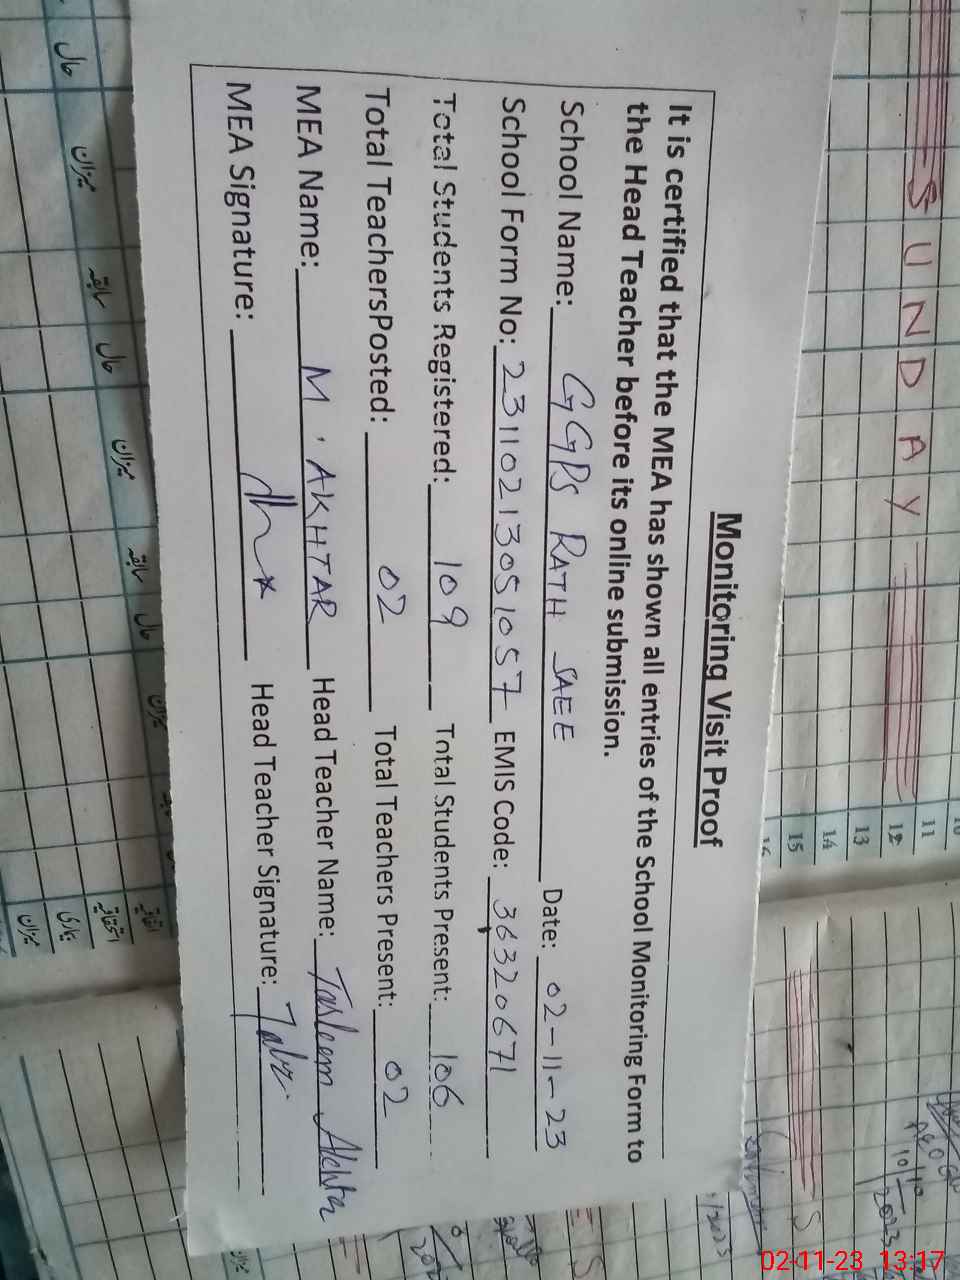 Monitoring Visit Proof
It is certified that the MEA has shown all entries of the School Monitoring Form to
the Head Teacher before its online submission.
School Name: GGPS RATH SAEE Date: 02-11-23
School Form No: 2311021305 1057 EMIS Code: 36320671
Total Students Registered: 109 Total Students Present: 106
Total TeachersPosted: 02 Total Teachers Present: 02
MEA Name: M. AKHTAR Head Teacher Name: Tasleem Akhtar
MEA Signature: Head Teacher Signature:
SUNDAY
10
11
12
13
14
15
16
حال
میزان
سابقہ
حال
میزان
سابقہ
حال
میزان
S
02-11-23 13:17